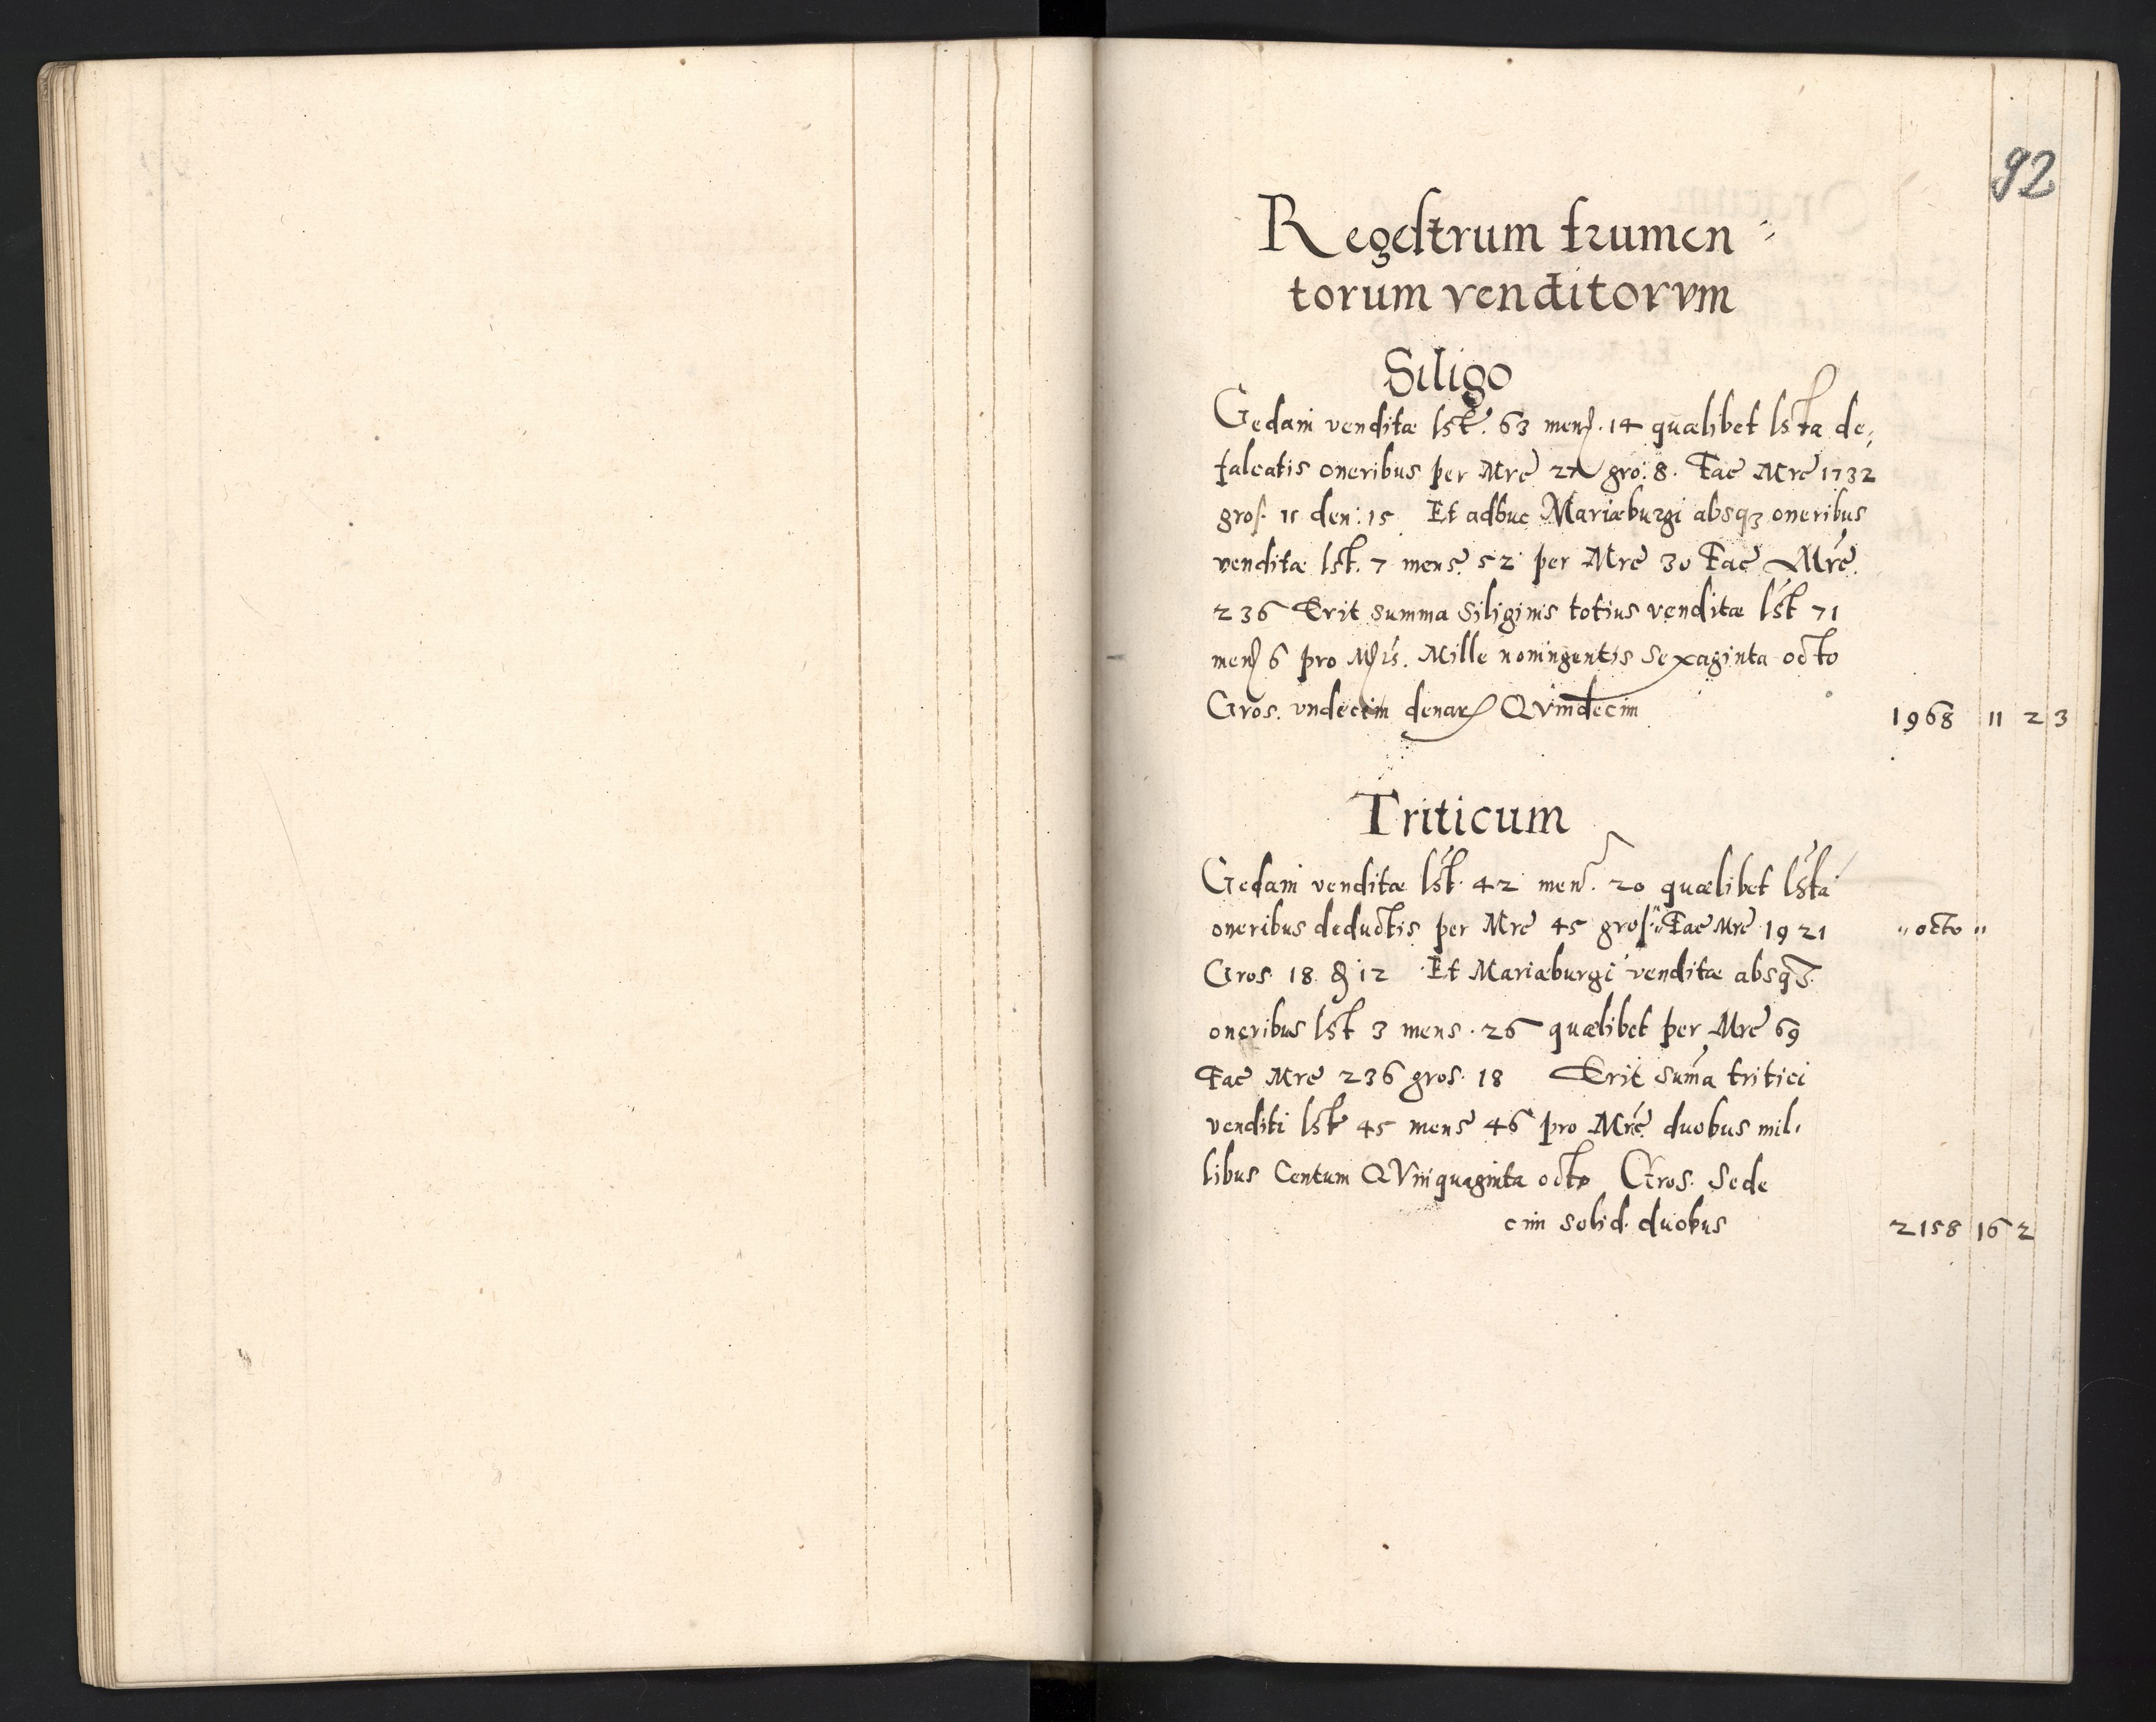 92
Regestrum frumen=
torum venditorvm
Siligo
Gedani venditæ lst. 63 mens. 14 quælibet lsta de,
falcatis oneribus per Mrc 27 gro: 8. Fac Mrc 1732
gros. 11 den: 15 Et adhuc Mariæburgi absq3 oneribus
venditæ lst. 7 mens. 52 per Mrc 30 Fac Mrc.
236 Erit summa Siliginis totius venditæ lst 71
mens 6 pro Mrs. Mille noningentis Sexaginta octo
Gros. vndecim denar QVindecim 1968 11 2 3
Triticum
Gedani venditæ lst. 42 mens. 20 quælibet lsta
oneribus deductis per Mrc 45 gros." Fac Mrc 19 21 " octo "
Gros 18 ₰ 12 Et Mariæburgi venditæ absq3
oneribus lst 3 mens. 26 quælibet per Mrc 69
Fac Mrc 236 gros. 18 Erit suma tritici
venditi lst 45 mens 46 pro Mrc duobus mil,
libus Centum QVinquaginta octo Gros. Sede
cim solid. duobus 2158 16 2